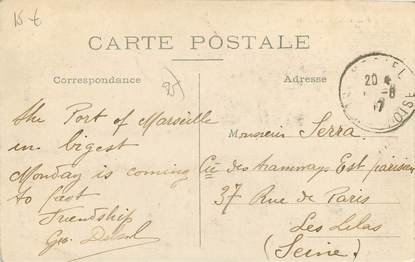 15 €
CARTE POSTALE
Correspondance
Adresse
95
20
OISE
the Port of Marseille
in bigest
Monday is coming
to fast
Friendship
Geo.
Monsieur Serra
Cie des tramways Est parisien
37 Rue de Paris
Les Lilas
(Seine)